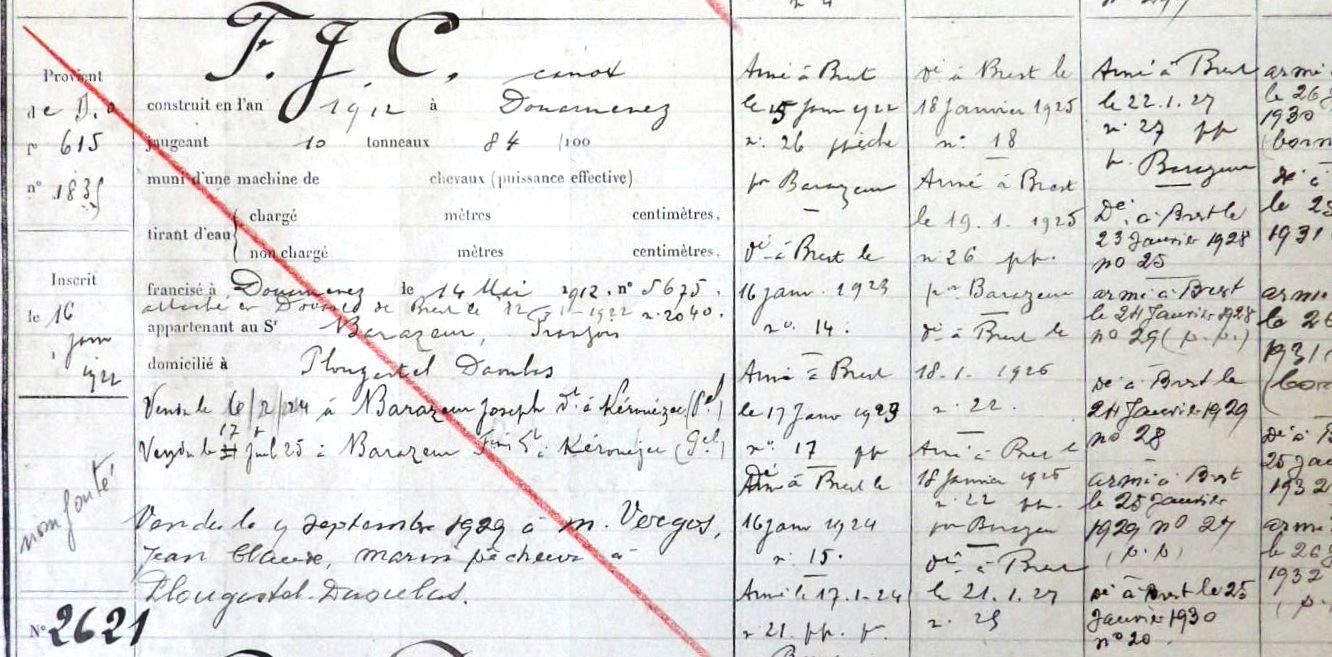 Provient
de D.o
f° 615
n° 1835
Inscrit
le 16
Janv
1922
non ponté
N° 2621
F. J. C. canot
construit en l'an 1912 à Douarnenez
jaugeant 10 tonneaux 84 /100
muni d'une machine de chevaux (puissance effective)
tirant d'eau
chargé mètres centimètres,
non chargé mètres centimètres,
francisé à Douarnenez le 14 Mai 1912. n° 5675.
attaché en Douane de Brest le 12-1-1922 n. 2040.
appartenant au Sr Barazeur, François
domicilié à Plougastel Daoulas
Vendu le 6/2/24 à Barazeur Joseph dt à Kéroumézec (Pel)
17
Vendu le Juil 25 à Barazeur à Kéroumézec (Pel)
Vendu le 9 septembre 1929 à M. Vergos,
Jean Claude, marin pêcheur à
Plougastel-Daoulas.
Armé à Brest
le 15 Janv 1922
n: 26 pêche
pr Barazeur
Dé à Brest le
16 janv. 1923
no. 14.
Armé à Brest
le 17 Janv 1923
no: 17 pp
Dé à Brest le
16 janv 1924
n: 15.
Armé le 17.1.24
n 21. pp. pr
Dé à Brest le
18 Janvier 1925
n: 18
Armé à Brest
le 19.1.1925
n 26 pp.
pr Barazeur
dé à Brest le
18-1-1926
n. 22.
Armé à Brest le
18 Janvier 1926
n. 22 pp.
pr Barazeur
dé à Brest
le 21.1.27
n. 25
Armé à Brest
le 22.1.27
n. 27 pp
pr. Barazeur
Dé à Brest le
23 Janvier 1928
no 25
armé à Brest
le 24 Janvier 1928
no 29 (p.p.)
Dé à Brest le
24 Janvier 1929
no 28
armé à Brest
le 25 Janvier
1929 no 27
(p.p)
Dé à Brest le 25
Janvier 1930
no 20.
armé
le 26
1930
1931
armé
le 26
1931
dé à
25 Ja
1932
armé
le 26
1932